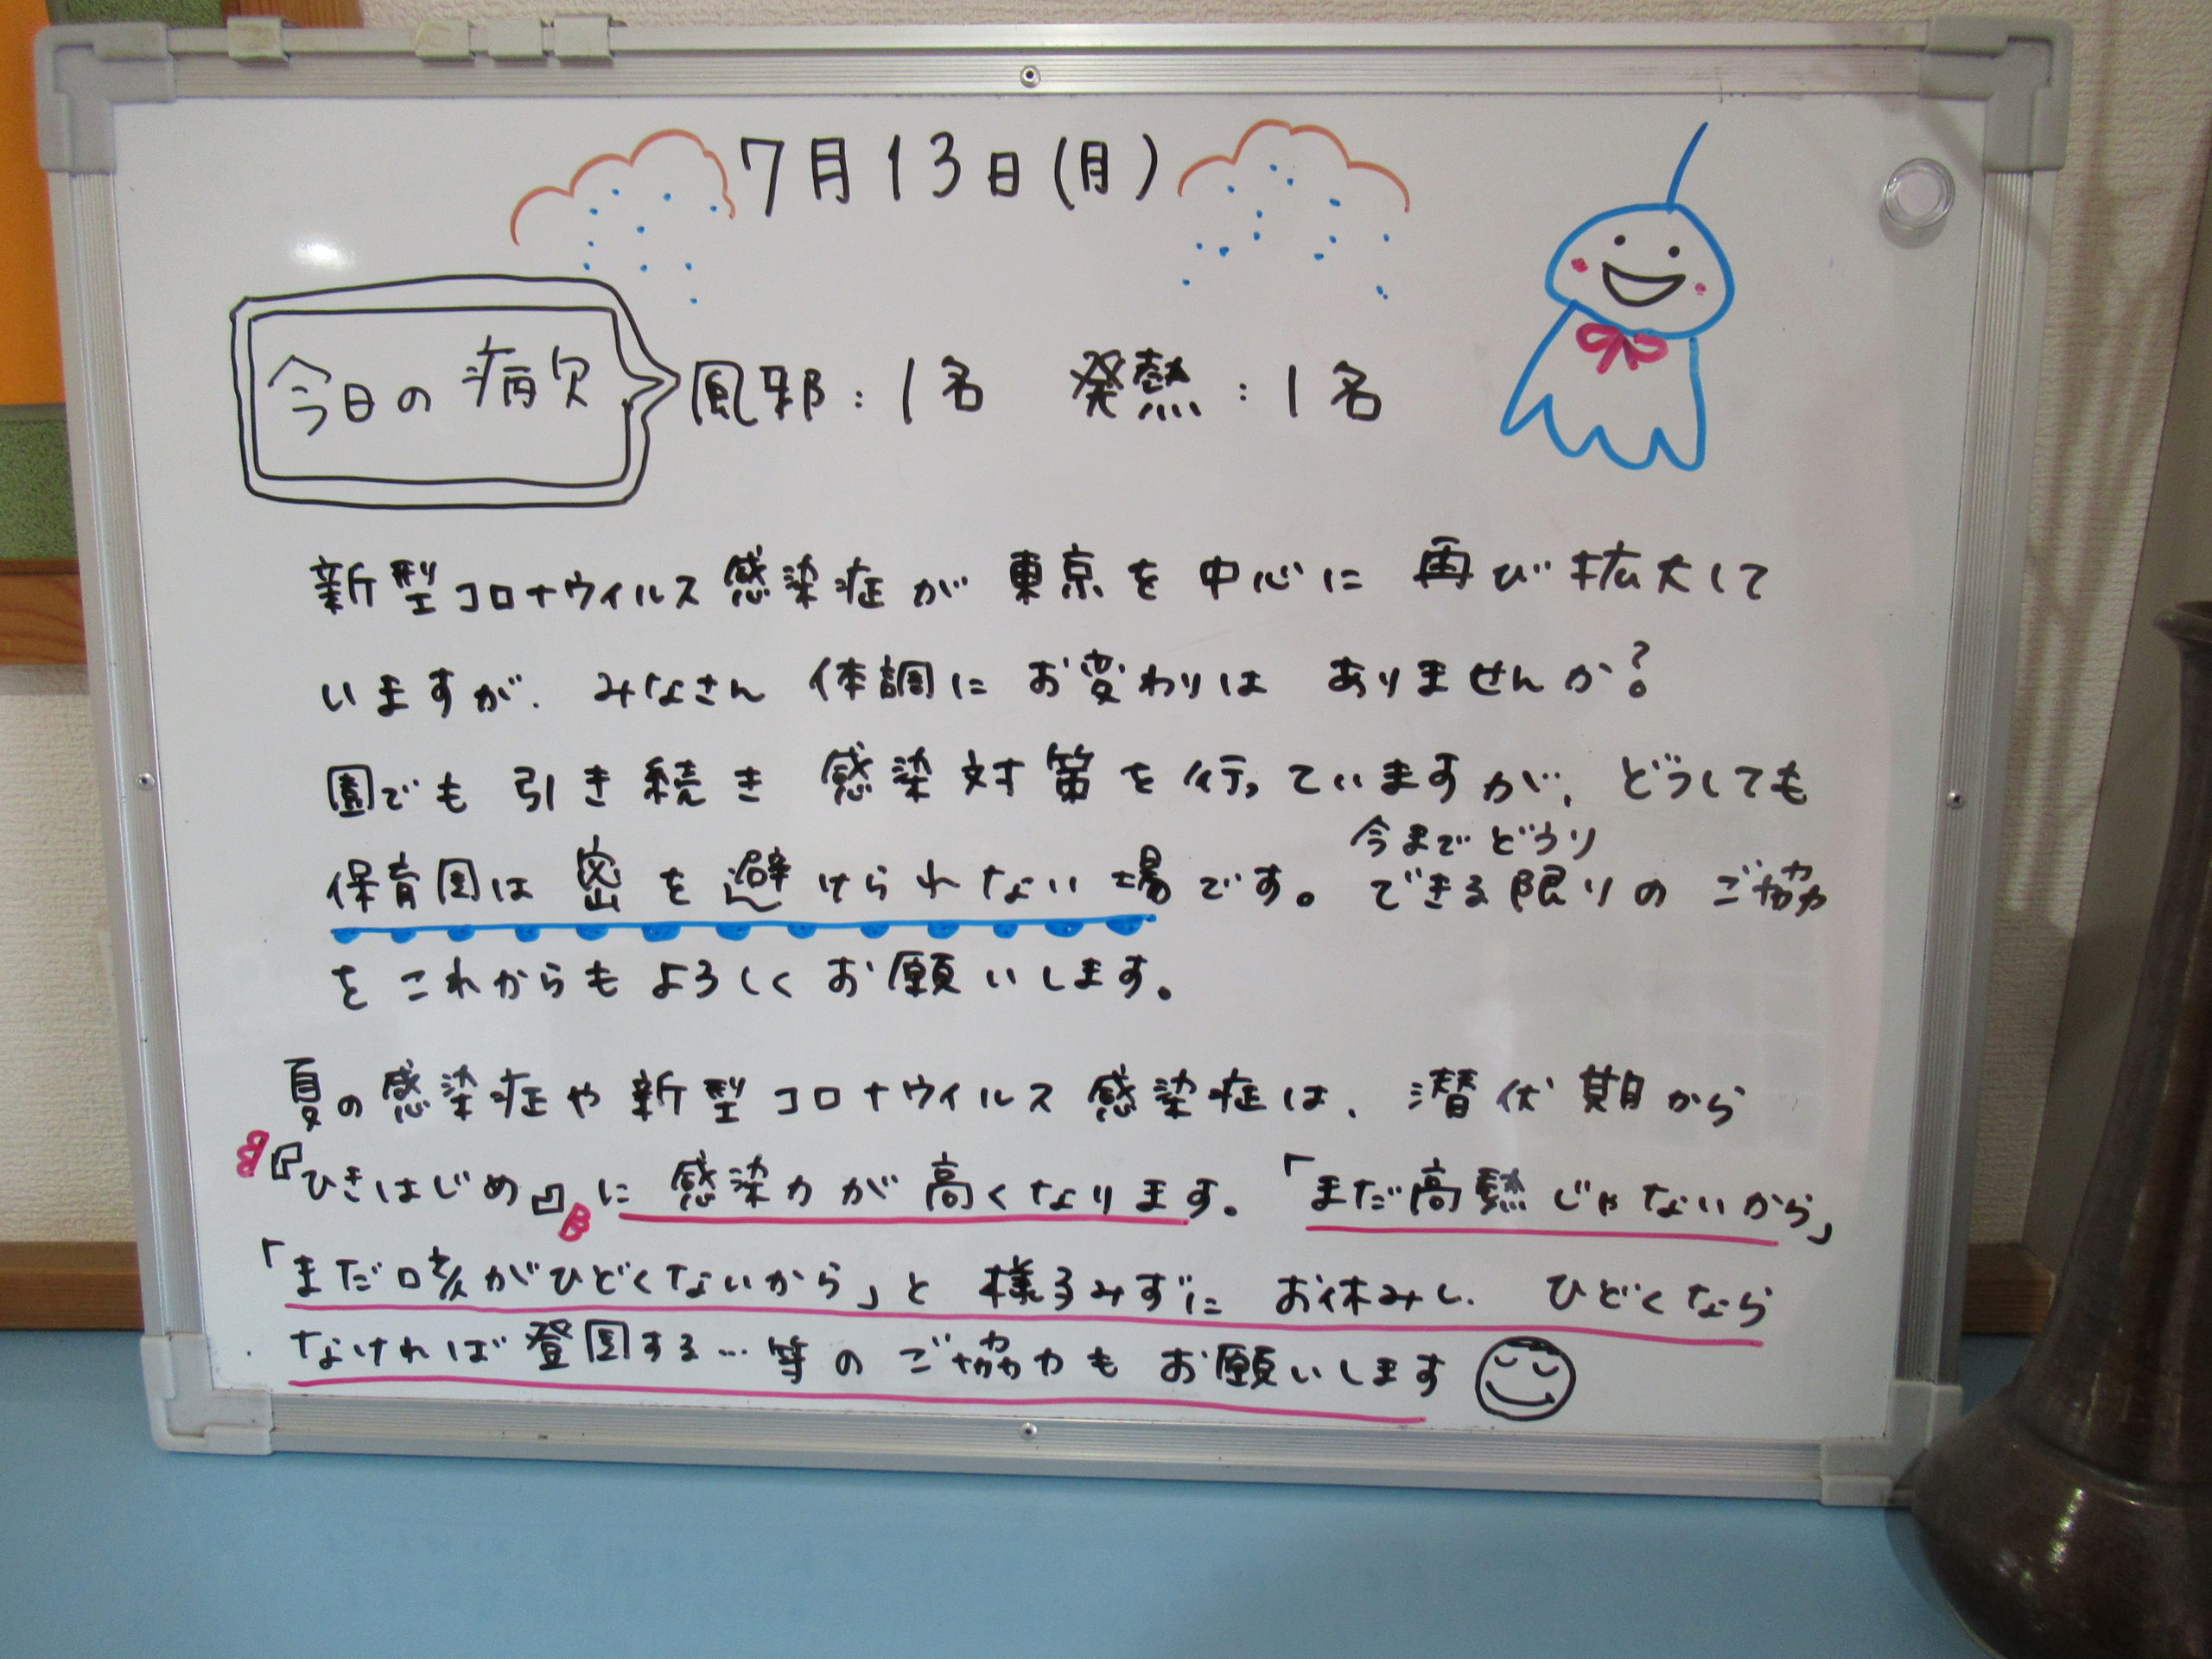 7月13日(月)
今日の病欠
風邪:1名 発熱:1名
新型コロナウィルス感染症が東京を中心に再び拡大して
いますが、みなさん体調にお変わりはありませんか?
園でも引き続き感染対策を行っていますが、どうしても
今までどうり
保育園は密を避けられない場です。できる限りのご協力
をこれからもよろしくお願いします。
夏の感染症や新型コロナウィルス感染症は、潜伏期から
『ひきはじめ』に感染力が高くなります。「まだ高熱じゃないから」
「まだ咳がひどくないから」と様子みずにお休みし、ひどくなら
なければ登園する…等のご協力もお願いします